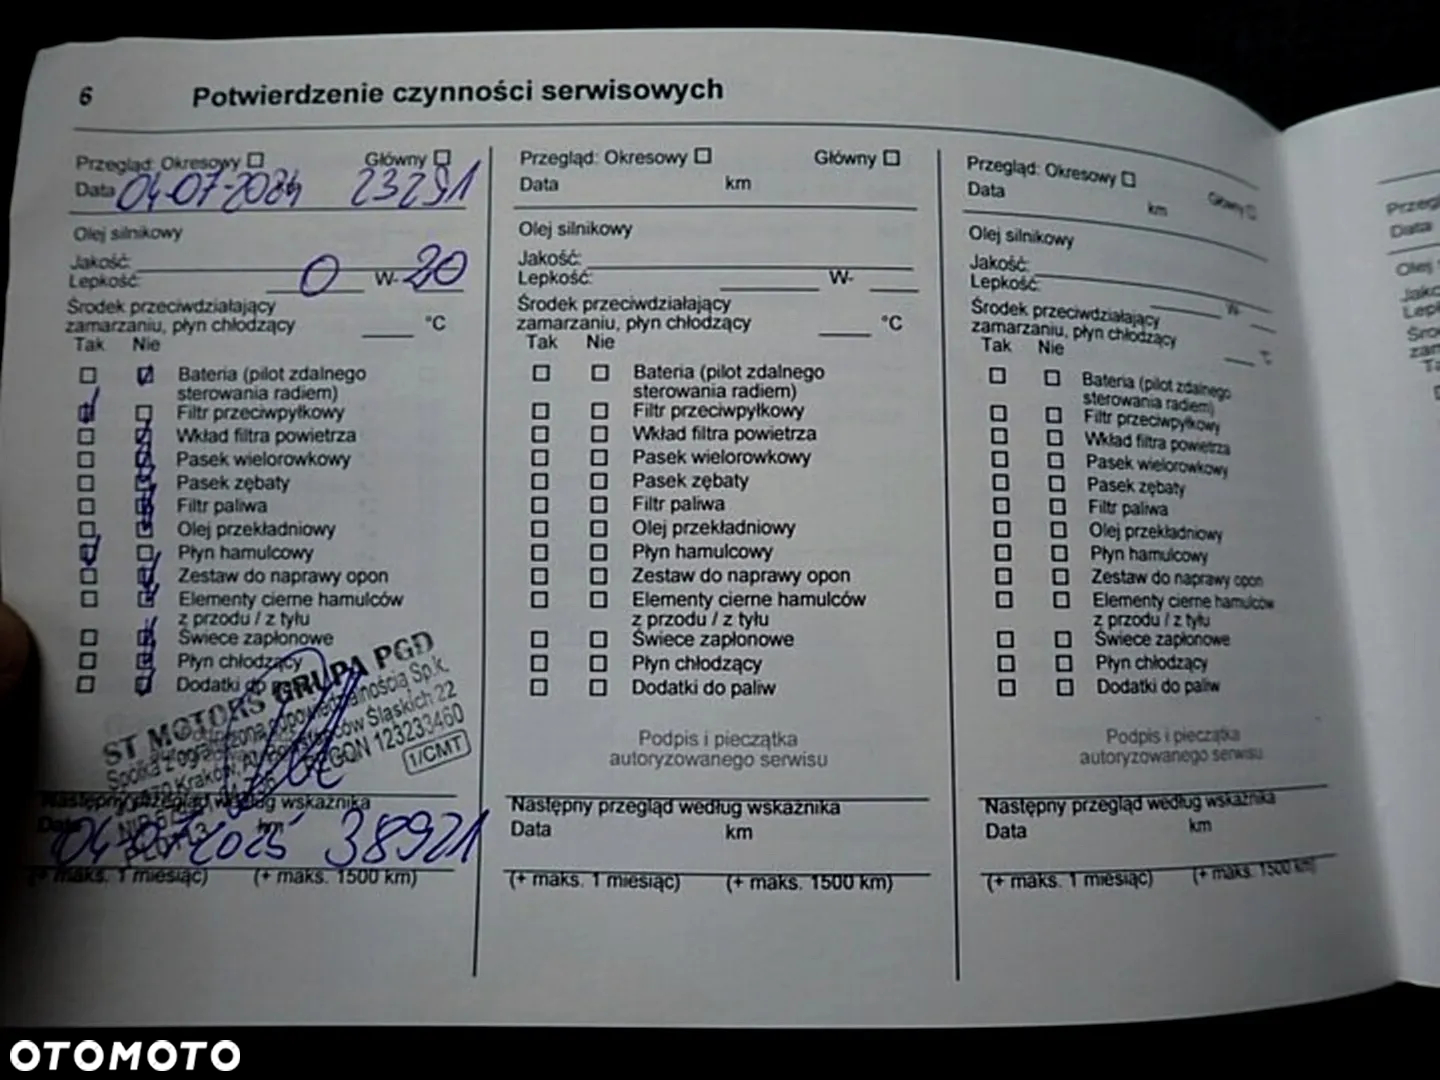 6 Potwierdzenie czynności serwisowych
Przegląd: Okresowy Główny
Data 04-07-2024 23291
Olej silnikowy
Jakość:
Lepkość: 0 W- 20
Środek przeciwdziałający
zamarzaniu, płyn chłodzący °C
Tak Nie
Bateria (pilot zdalnego
sterowania radiem)
Filtr przeciwpyłkowy
Wkład filtra powietrza
Pasek wielorowkowy
Pasek zębaty
Filtr paliwa
Olej przekładniowy
Płyn hamulcowy
Zestaw do naprawy opon
Elementy cierne hamulców
z przodu / z tyłu
Świece zapłonowe
Płyn chłodzący
Dodatki do
ST MOTORS GRUPA PGD
Spółka z ograniczoną odpowiedzialnością Sp.k.
Kraków, Al. Powstańców Śląskich 22
REGON 123233460
1/CMT
Następny przegląd według wskaźnika
Data km
04-07-2025 38921
(+ maks. 1 miesiąc) (+ maks. 1500 km)
Przegląd: Okresowy Główny
Data km
Olej silnikowy
Jakość:
Lepkość: W-
Środek przeciwdziałający
zamarzaniu, płyn chłodzący °C
Tak Nie
Bateria (pilot zdalnego
sterowania radiem)
Filtr przeciwpyłkowy
Wkład filtra powietrza
Pasek wielorowkowy
Pasek zębaty
Filtr paliwa
Olej przekładniowy
Płyn hamulcowy
Zestaw do naprawy opon
Elementy cierne hamulców
z przodu / z tyłu
Świece zapłonowe
Płyn chłodzący
Dodatki do paliw
Podpis i pieczątka
autoryzowanego serwisu
Następny przegląd według wskaźnika
Data km
(+ maks. 1 miesiąc) (+ maks. 1500 km)
Przegląd: Okresowy Główny
Data km
Olej silnikowy
Jakość:
Lepkość: W-
Środek przeciwdziałający
zamarzaniu, płyn chłodzący °C
Tak Nie
Bateria (pilot zdalnego
sterowania radiem)
Filtr przeciwpyłkowy
Wkład filtra powietrza
Pasek wielorowkowy
Pasek zębaty
Filtr paliwa
Olej przekładniowy
Płyn hamulcowy
Zestaw do naprawy opon
Elementy cierne hamulców
z przodu / z tyłu
Świece zapłonowe
Płyn chłodzący
Dodatki do paliw
Podpis i pieczątka
autoryzowanego serwisu
Następny przegląd według wskaźnika
Data km
(+ maks. 1 miesiąc) (+ maks. 1500 km)
Data
OTOMOTO